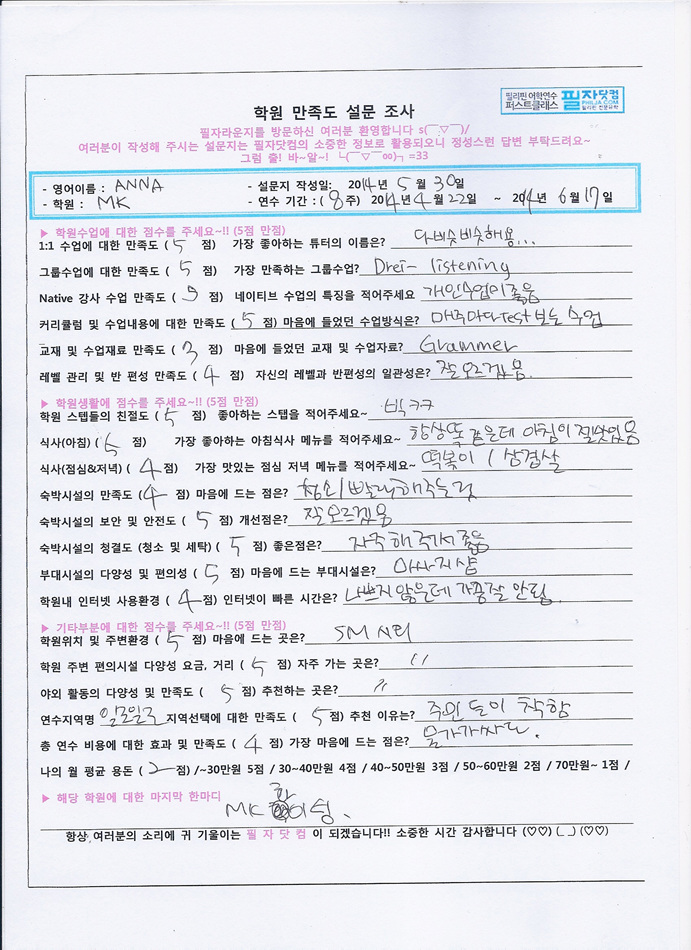 필리핀 어학연수
퍼스트클래스
필자닷컴
PHILJA.COM
필리핀 전문유학
학원 만족도 설문 조사
필자라운지를 방문하신 여러분 환영합니다 s(￣▽￣)/
여러분이 작성해 주시는 설문지는 필자닷컴의 소중한 정보로 활용되오니 정성스런 답변 부탁드려요~
그럼 출! 바~알~! ┗(￣▽￣oo)┓=33
- 영어이름 : ANNA - 설문지 작성일: 2014년 5월 30일
- 학원 : MK - 연수 기간 : ( 8주) 2014년 4월 22일 ~ 2014년 6월 17일
▶ 학원수업에 대한 점수를 주세요~!! (5점 만점)
1:1 수업에 대한 만족도 ( 5 점) 가장 좋아하는 튜터의 이름은? 다비슷비슷해용...
그룹수업에 대한 만족도 ( 5 점) 가장 만족하는 그룹수업? Drei- listening
Native 강사 수업 만족도 ( 점) 네이티브 수업의 특징을 적어주세요 개인수업이좋음
커리큘럼 및 수업내용에 대한 만족도 ( 5 점) 마음에 들었던 수업방식은? 매주마다 Test보는 수업
교재 및 수업재료 만족도 ( 3 점) 마음에 들었던 교재 및 수업자료? Grammer
레벨 관리 및 반 편성 만족도 ( 4 점) 자신의 레벨과 반편성의 일관성은? 잘모르겠음.
▶ 학원생활에 점수를 주세요~!! (5점 만점)
학원 스텝들의 친절도 ( 5 점) 좋아하는 스텝을 적어주세요~ 빅쿠쿠
식사(아침) ( 5 점) 가장 좋아하는 아침식사 메뉴를 적어주세요~ 항상똑같은데 아침이 젤맛있음
식사(점심&저녁) ( 4점) 가장 맛있는 점심 저녁 메뉴를 적어주세요~ 떡볶이 / 삼겹살
숙박시설의 만족도 ( 4 점) 마음에 드는 점은? 청소/빨래해주는것
숙박시설의 보안 및 안전도 ( 5 점) 개선점은? 잘모르겠음
숙박시설의 청결도 (청소 및 세탁) ( 5 점) 좋은점은? 자주해주셔서좋음
부대시설의 다양성 및 편의성 ( 5 점) 마음에 드는 부대시설은? 마사지샵
학원내 인터넷 사용환경 ( 4점) 인터넷이 빠른 시간은? 나쁘지않은데 가끔잘 안됨.
▶ 기타부분에 대한 점수를 주세요~!! (5점 만점)
학원위치 및 주변환경 ( 5 점) 마음에 드는 곳은? SM 시티
학원 주변 편의시설 다양성 요금, 거리 ( 5 점) 자주 가는 곳은? "
야외 활동의 다양성 및 만족도 ( 5 점) 추천하는 곳은? "
연수지역명 일로일로 지역선택에 대한 만족도 ( 5점) 추천 이유는? 주민들이 착함
총 연수 비용에 대한 효과 및 만족도 ( 4 점) 가장 마음에 드는 점은? 물가가싸다.
나의 월 평균 용돈 ( 2점) /~30만원 5점 / 30~40만원 4점 / 40~50만원 3점 / 50~60만원 2점 / 70만원~ 1점 /
▶ 해당 학원에 대한 마지막 한마디
MK 화이팅.
항상 여러분의 소리에 귀 기울이는 필자닷컴 이 되겠습니다!! 소중한 시간 감사합니다 (♡♡) (_ _) (♡♡)